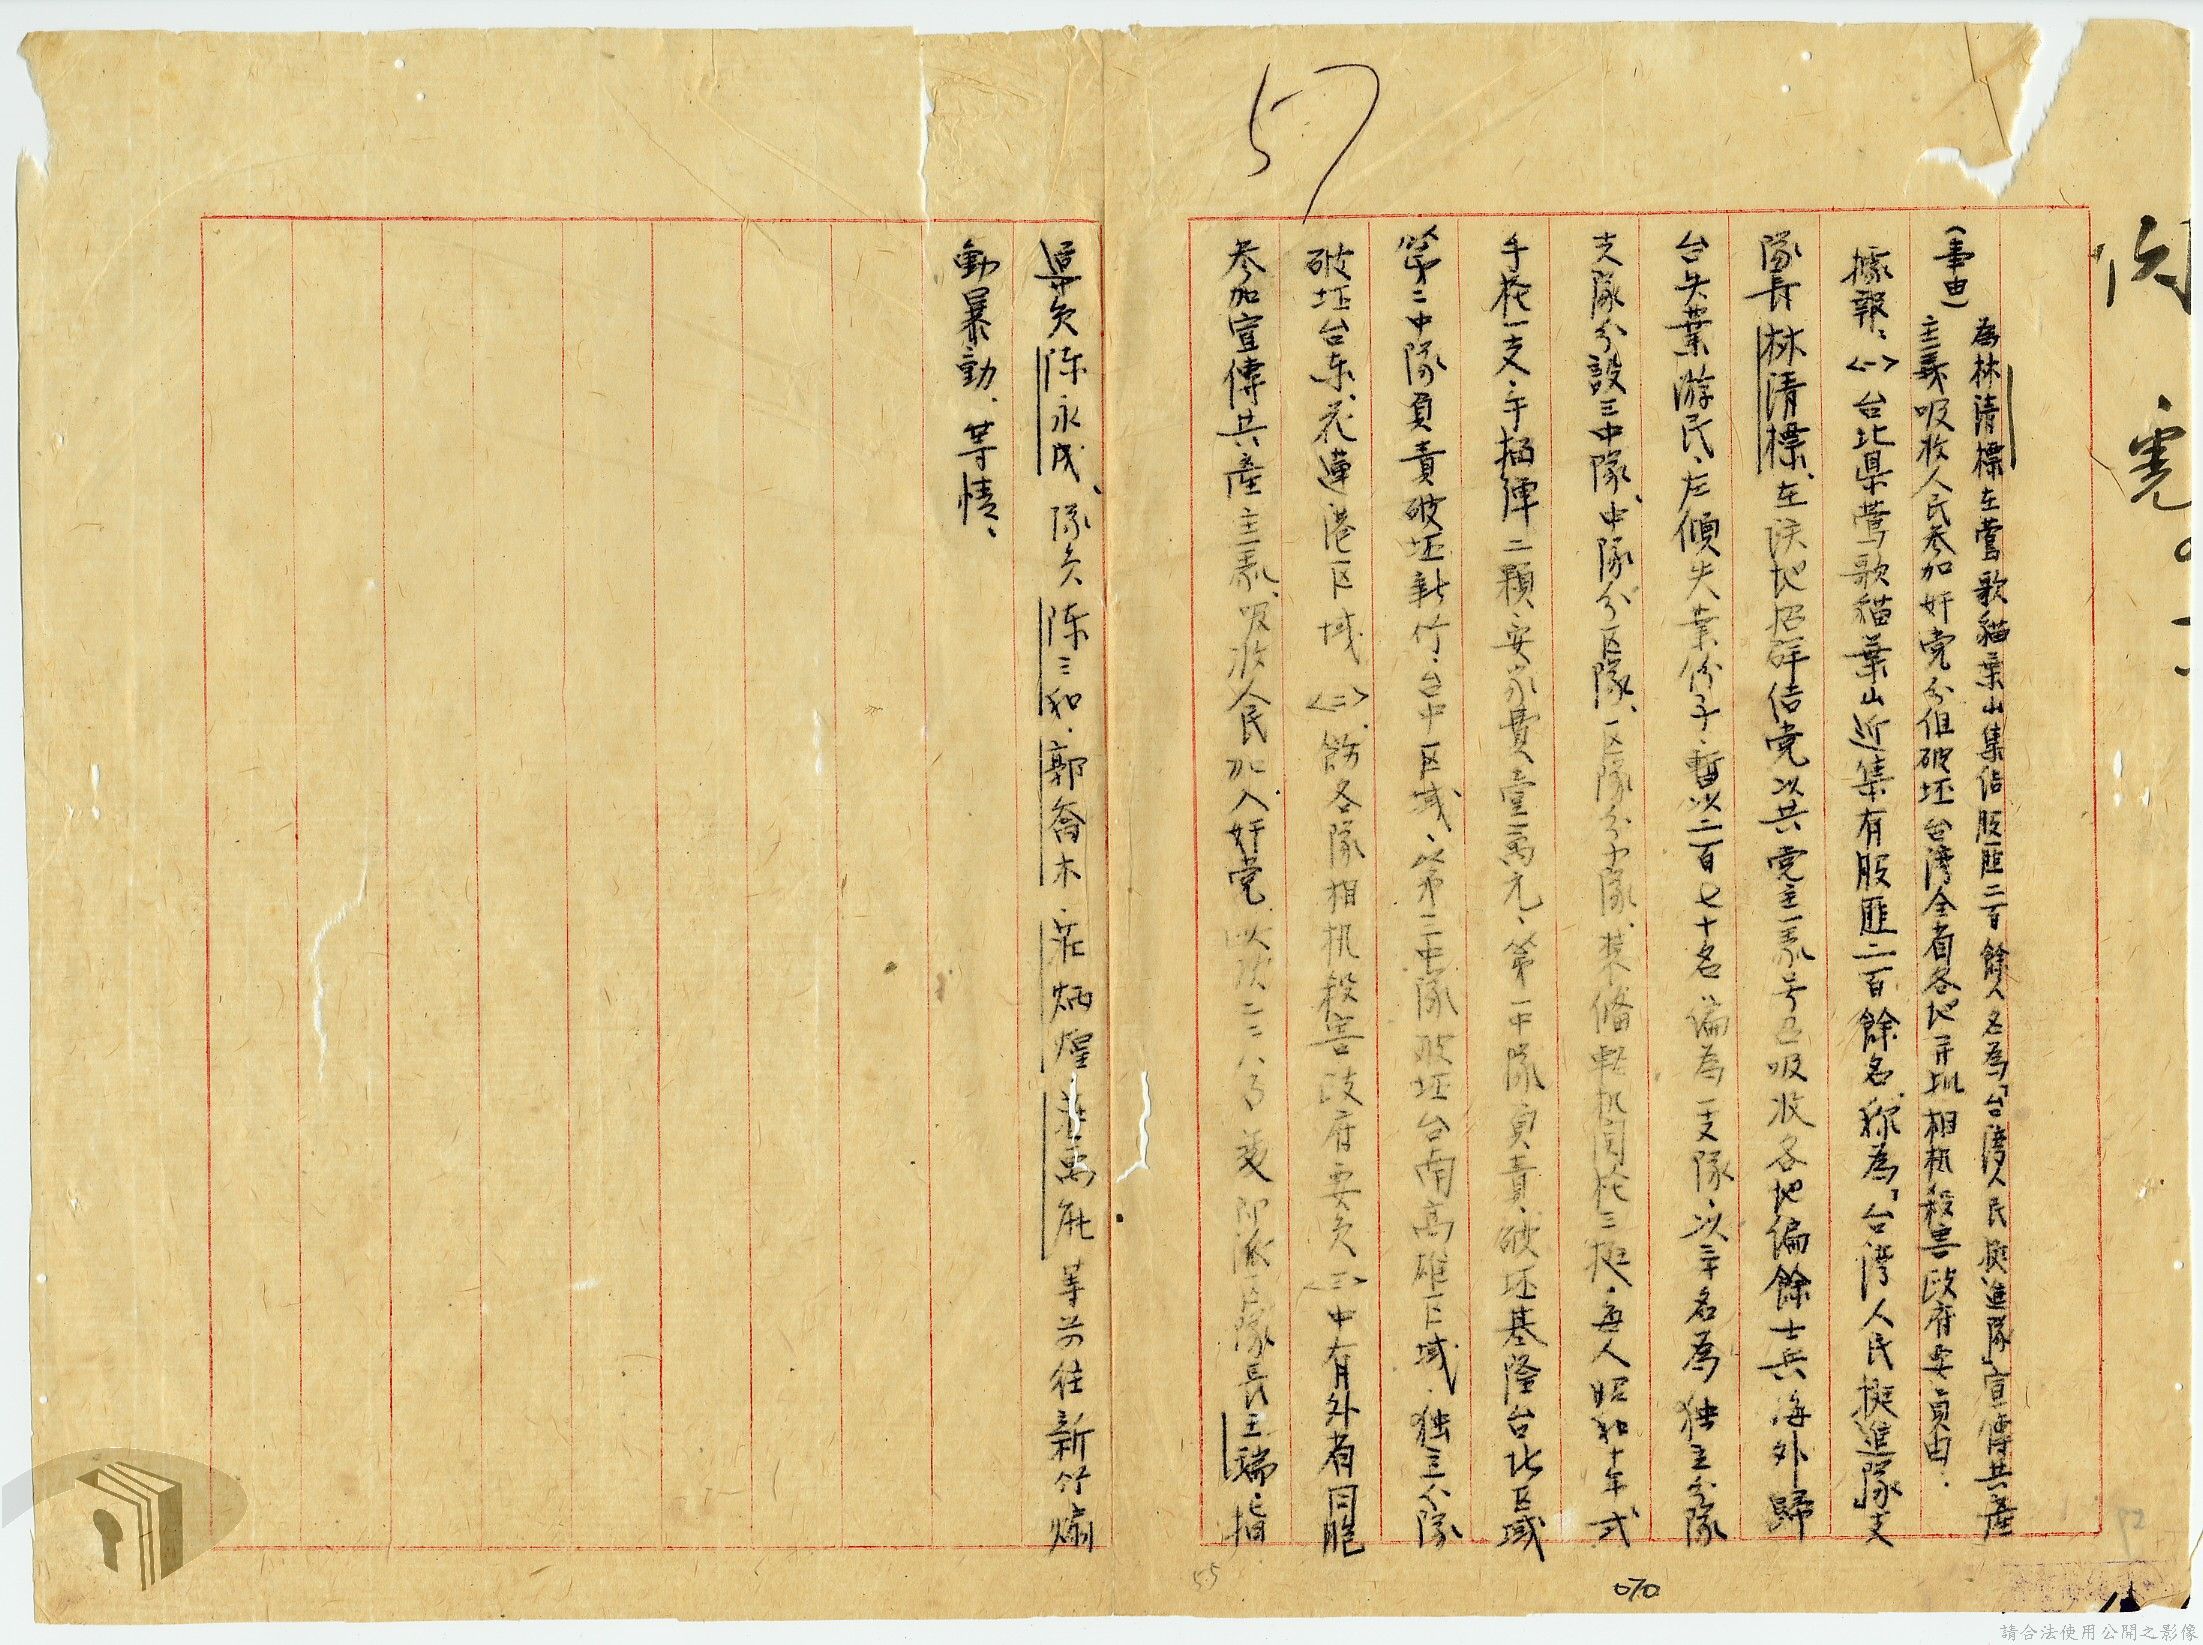 57
(事由)
為林清標在鶯歌貓葉山集結股匪二百餘人名為「台湾人民挺進隊」宣傳共產
主義吸收人民參加奸党分但破坯台湾全省各地并圠相机殺害政府要員由.
據報:<一>台北県鶯歌貓葉山近集有股匪二百餘名、称為「台湾人民挺進隊」支
隊長林清標、在該地招群佶党以共党主義号召吸收各地編餘士兵海外歸
台失業游民、左傾失業份子、暫以二百七十名編為一支隊、以三十名為独立分隊
支隊分設三中隊、中隊分区隊、区隊分小隊、某備軽机関枪三挺、每人昭和十年式
手枪一支、手榴弾二顆、安家費壹萬元、第一中隊負責破坯基隆台北区域
第二中隊負責破坯新竹、台中区域、第三中隊破坯台南高雄区域、独立分隊
破坯台東、花蓮港区域<二>、飭各隊相机殺害政府要員<三>中有外省同胞
參加宣傳共產主義、吸收人民加入奸党 以次二二八 即派区隊長王瑞、指
導員陈永成、隊員陈三和、郭喬木、莊炳煌、莊禹 等前往新竹煽
動暴動、等情、
55
070
請合法使用公開之影像